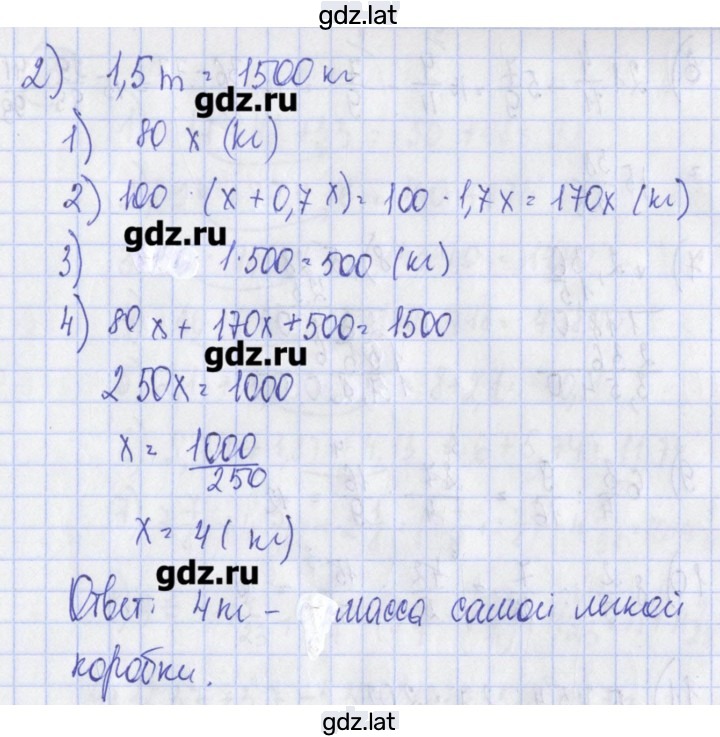 gdz.lat
2) 1,5 т = 1500 кг
gdz.ru
1) 80 x (кг)
2) 100 · (x + 0,7 x) = 100 · 1,7x = 170x (кг)
gdz.ru
3) 1·500 = 500 (кг)
4) 80x + 170x + 500 = 1500
gdz.ru
250x = 1000
x = 1000
250
x = 4 ( кг)
gdz.ru
Ответ: 4 кг - масса самой легкой
коробки.
gdz.lat